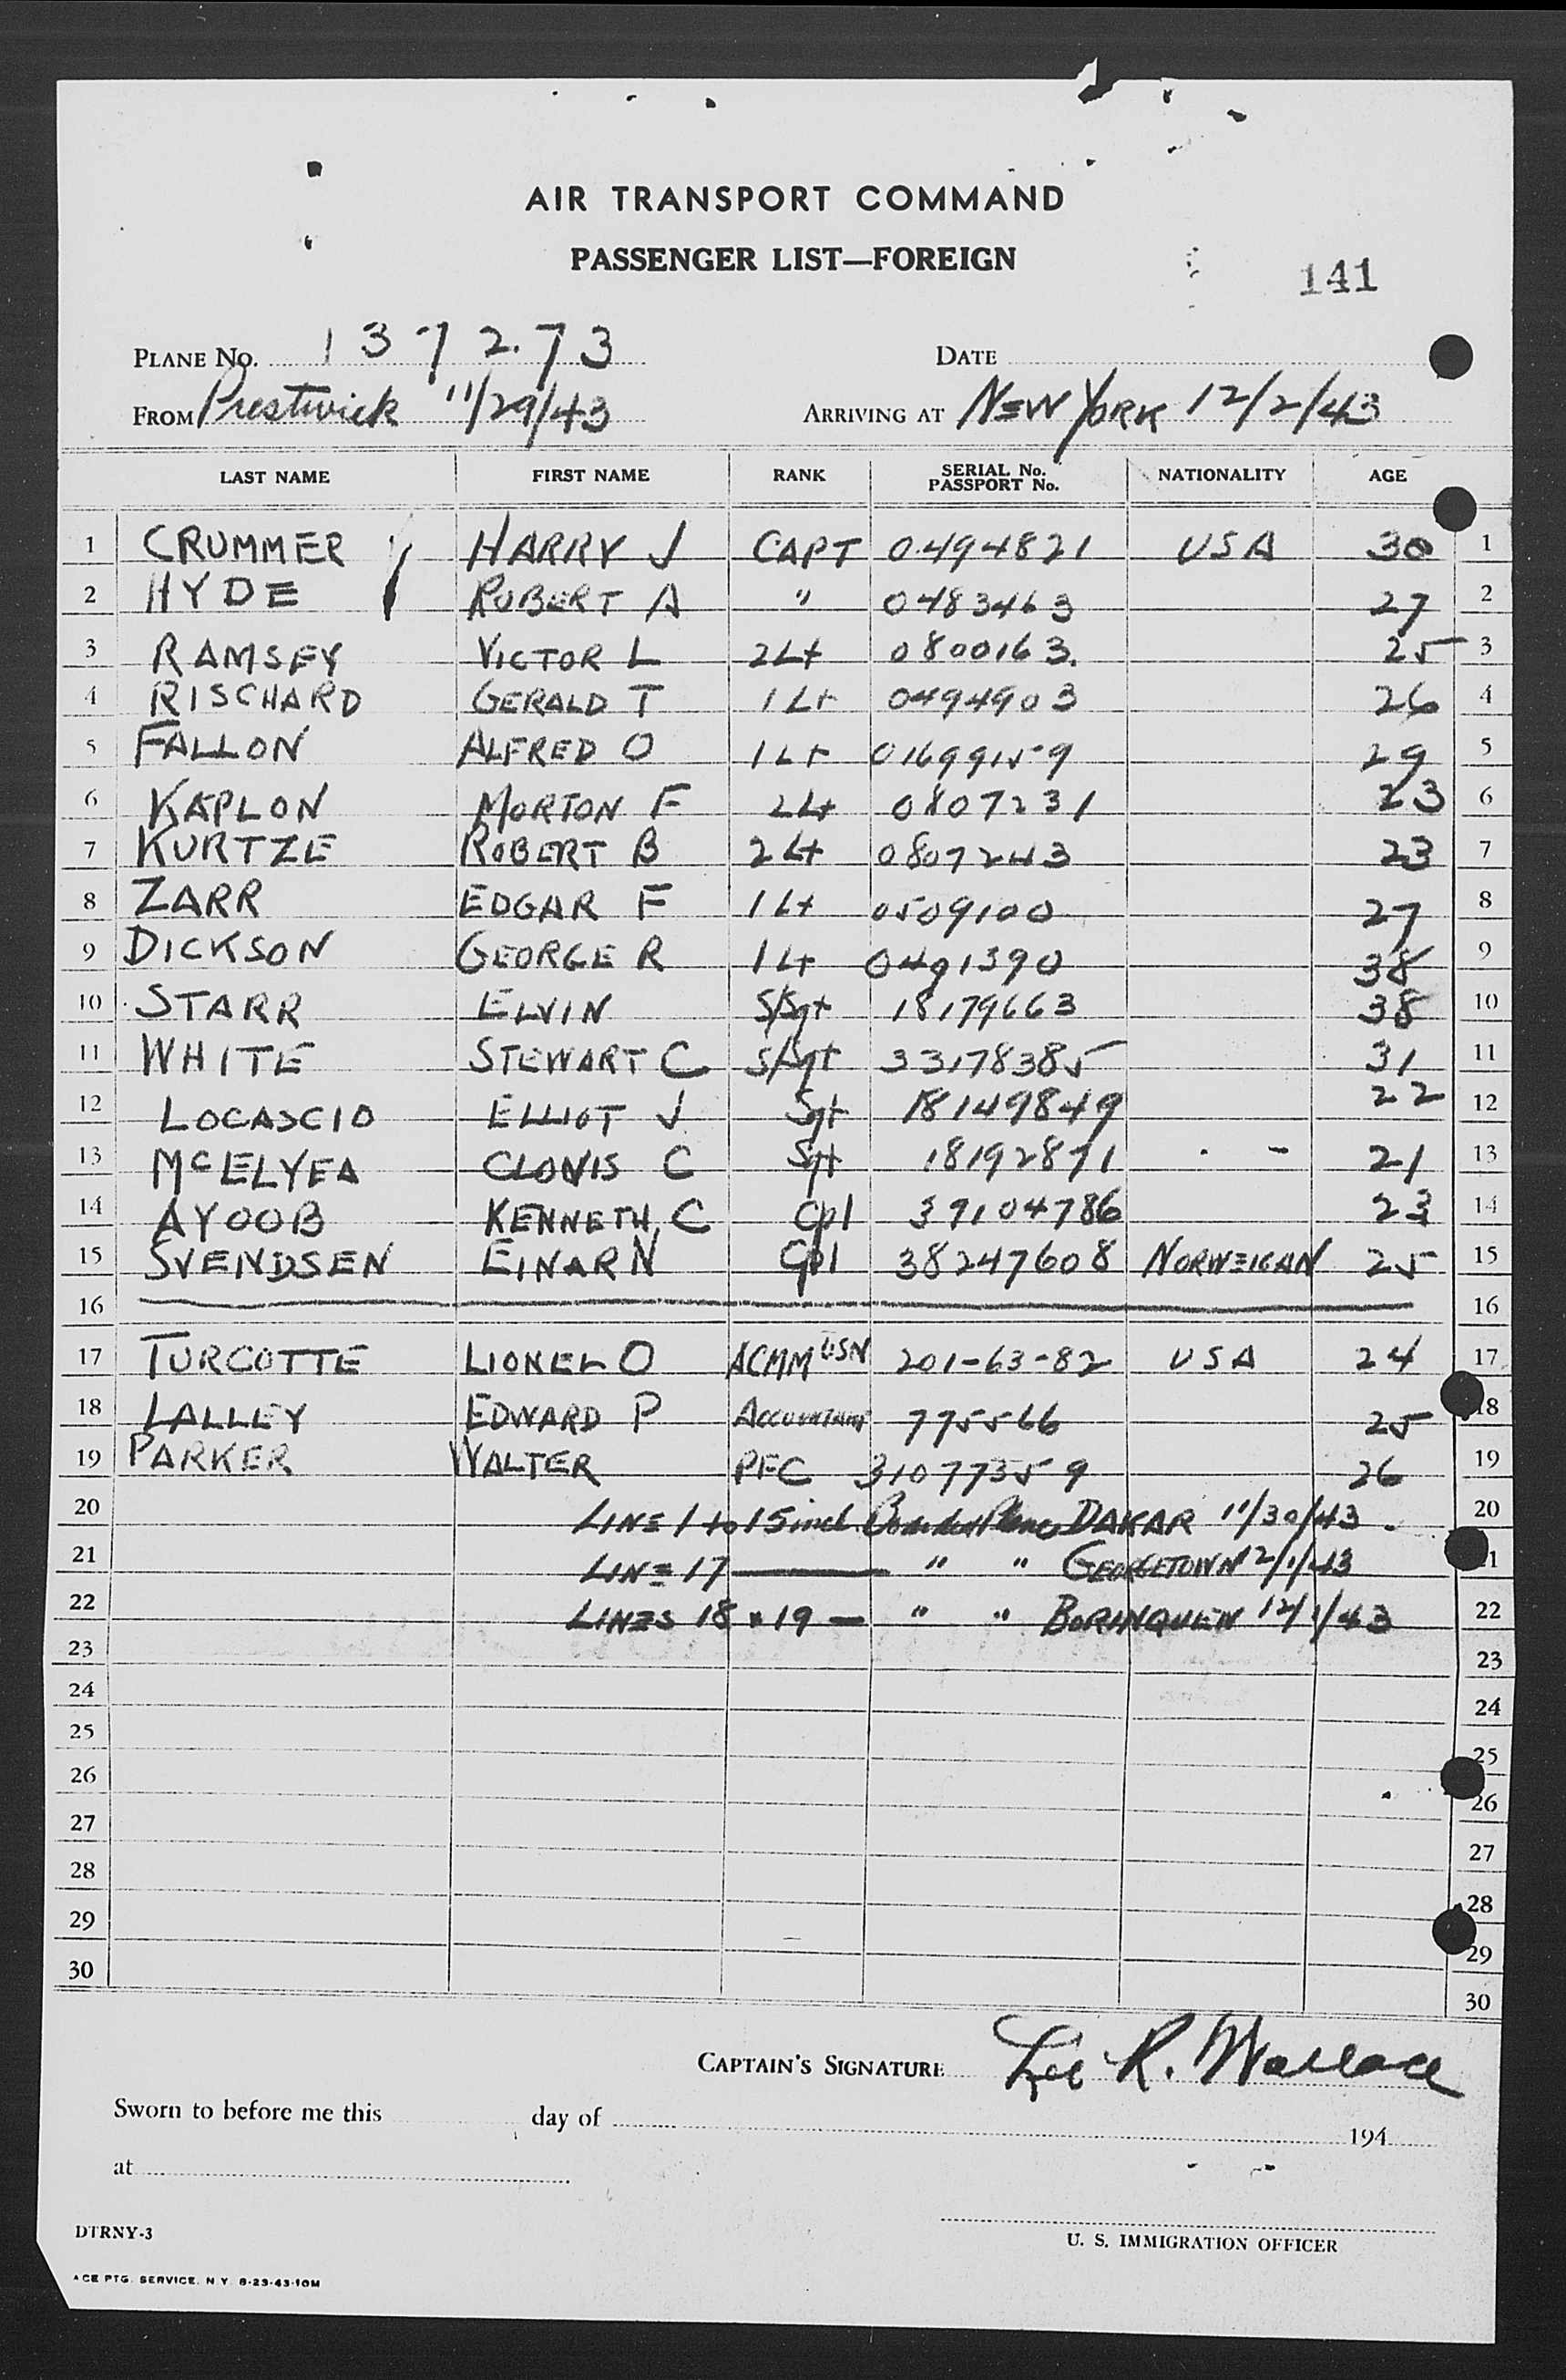 AIR TRANSPORT COMMAND
PASSENGER LIST—FOREIGN
141
PLANE No. 137273
DATE
FROM Prestwick 11/29/43 ARRIVING AT NEW YORK 12/2/43
LAST NAME FIRST NAME RANK SERIAL No. PASSPORT No. NATIONALITY AGE
1 CRUMMER HARRY J CAPT 0494821 USA 30 1
2 HYDE ROBERT A " 0483463 27 2
3 RAMSEY VICTOR L 2Lt 0800163. 25 3
4 RISCHARD GERALD T 1Lt 0494903 26 4
5 FALLON ALFRED O 1Lt 01699159 29 5
6 KAPLON MORTON F 2Lt 0807231 23 6
7 KURTZE ROBERT B 2Lt 0807243 23 7
8 ZARR EDGAR F 1Lt 0509100 27 8
9 DICKSON GEORGE R 1Lt 0491390 38 9
10 STARR ELVIN S/Sgt 18179663 38 10
11 WHITE STEWART C S/Sgt 33178385 31 11
12 LOCASCIO ELLIOT J Sgt 18149849 22 12
13 McELYEA CLOVIS C Sgt 18192871 21 13
14 AYOOB KENNETH, C Cpl 39104786 23 14
15 SVENDSEN EINAR N Cpl 38247608 NORWEIGAN 25 15
16 16
17 TURCOTTE LIONEL O ACMM USN 201-63-82 USA 24 17
18 LALLLY EDWARD P ACCOUNTANT 775566 25 18
19 PARKER WALTER PFC 31077359 26 19
20 LINE 1 to 15 incl. Boarded Plane DAKAR 11/30/43. 20
21 LINE 17 — " " GEORGETOWN 12/1/43 21
22 LINES 18 " 19 — " " BORINQUEN 12/1/43 22
23 23
24 24
25 25
26 26
27 27
28 28
29 29
30 30
CAPTAIN'S SIGNATURE Lee R. Wallace
Sworn to before me this day of 194
at
DTRNY-3
U. S. IMMIGRATION OFFICER
ACE PTG. SERVICE. N.Y. 8-23-43-10M